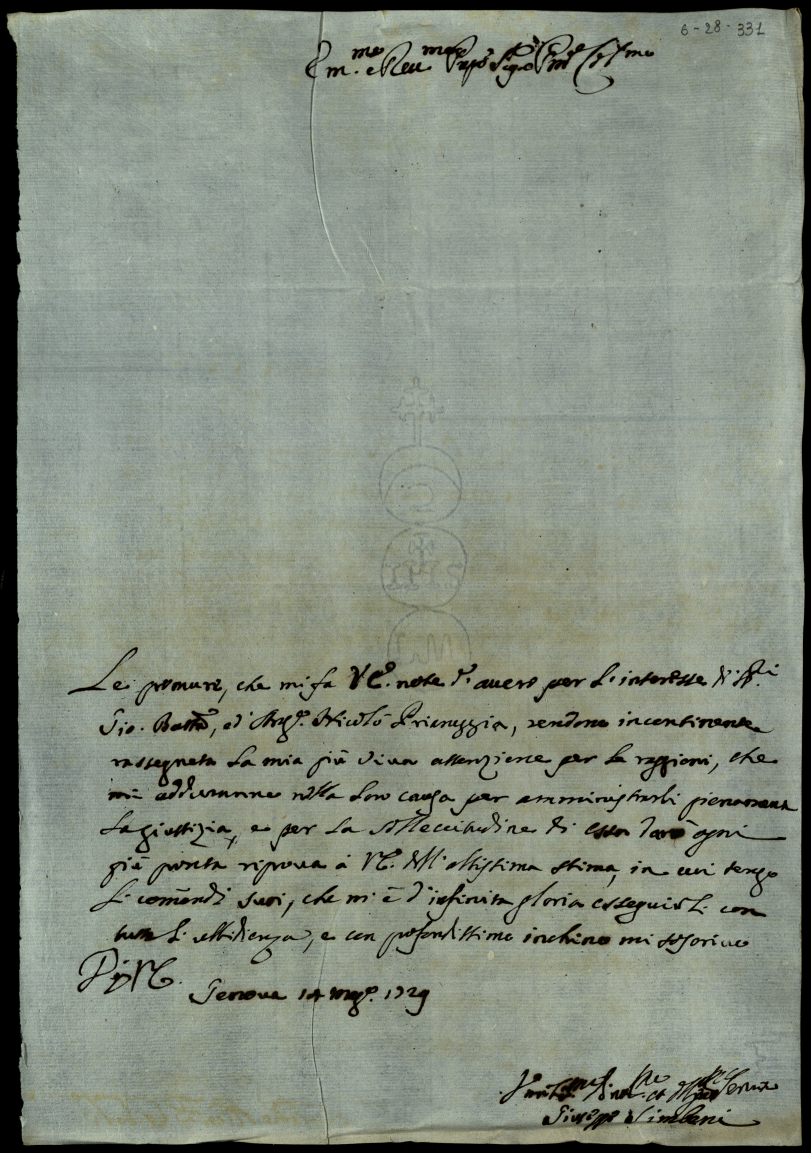 6-28-331
Em.mo e Rev.mo
Le premure, che mi fa V.E. note d'avere per l'interesse di
Gio. Batta, ed Nicolò Prieruggia, rendono incontinente
rassegnata la mia più viva attenzione per le raggioni, che
mi addurranno nella loro causa per amministrarli pienamente
la giustizia, e per la sollecitudine di essa darò ogni
più pronta riprova à V.E. dell'altissima stima, in cui tengo
li comandi suoi, che mi è d'infinita gloria esseguirli con
tutta l'ubbidienza, e con profondissimo inchino mi sottoscrivo
D V.E.
Genova 14 Mag.o 1729
Giuseppe